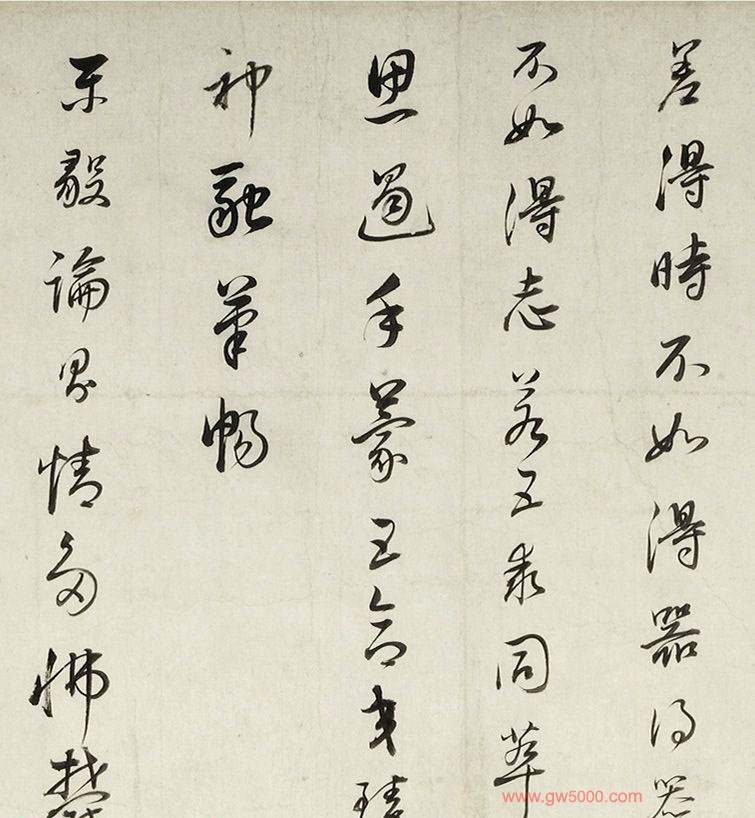 差得時不如得器得器
不如得志若五乖同萃
思遏手蒙五合交臻
神融筆暢
樂毅論情多怫鬱
www.gw5000.com